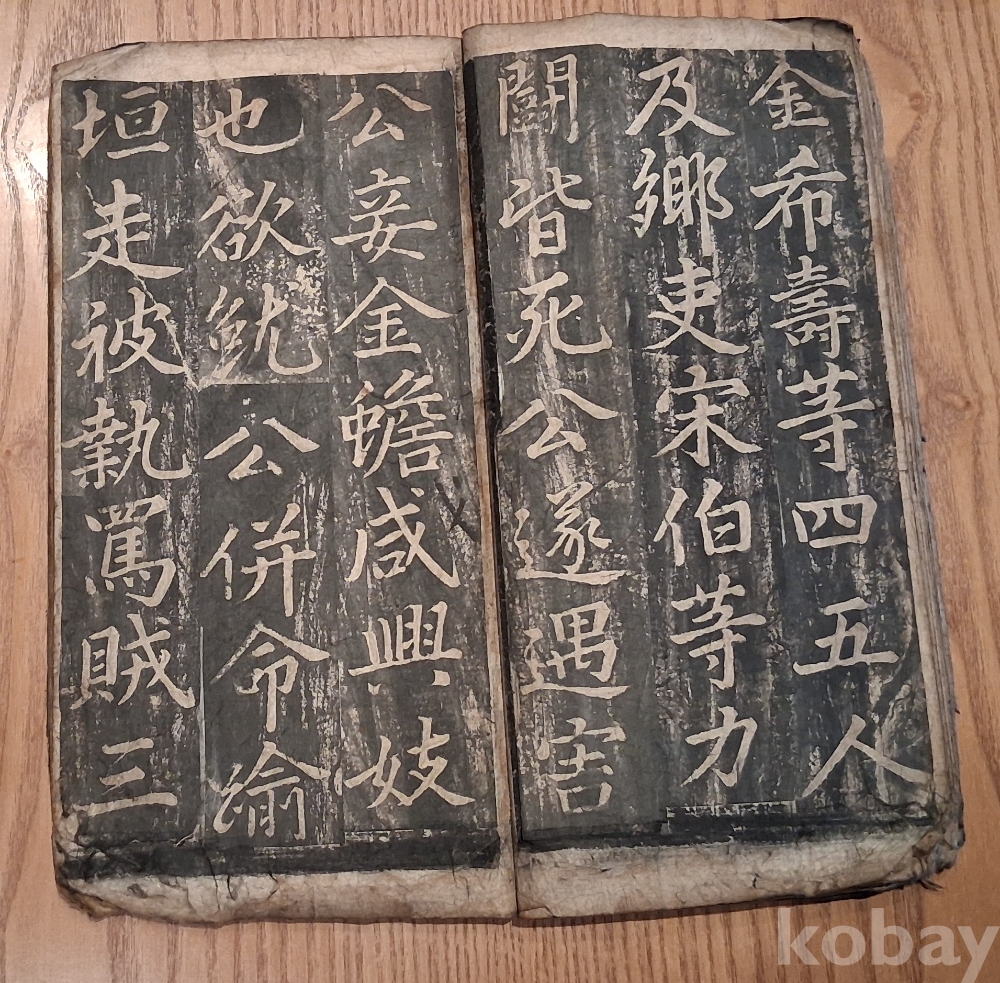 金希壽等四五人
及鄕吏宋伯等力
鬪皆死公遂遇害
公妾金蟾咸興妓
也欲就公併命踰
垣走被執罵賊三
kobay